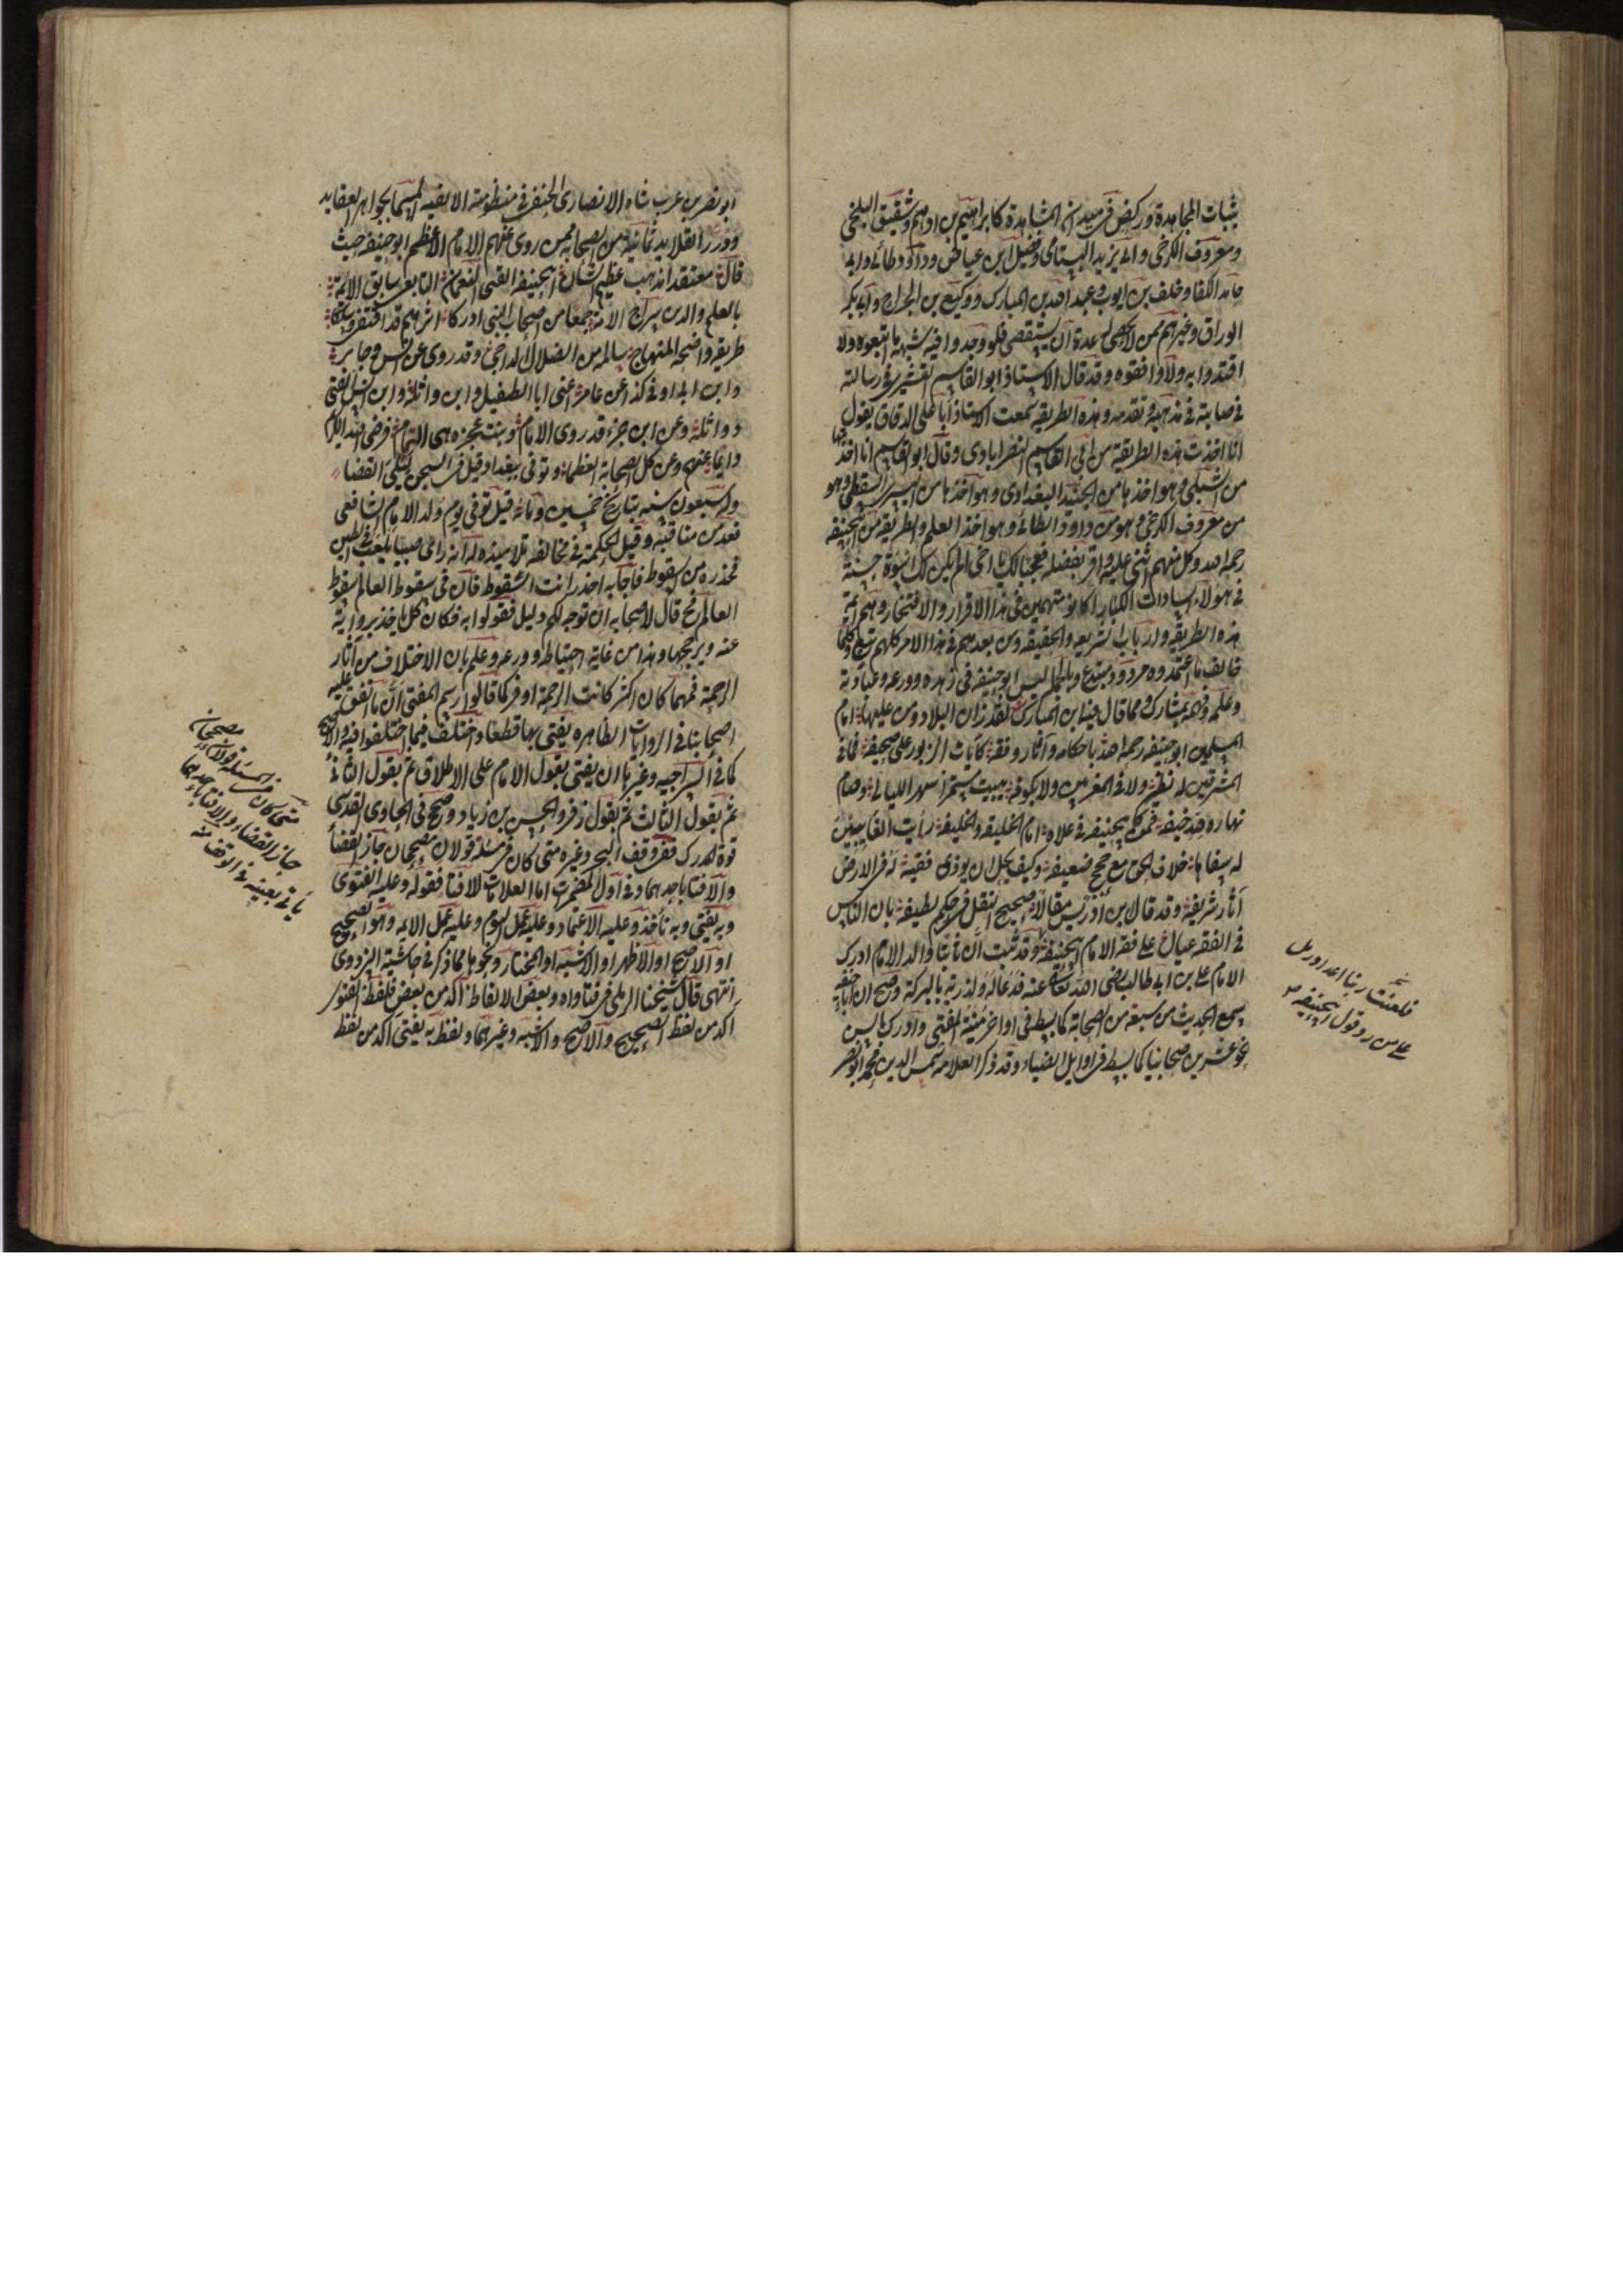 بثبات المجاهدة وركض في ميدان المشاهدة كابراهيم بن ادهم وشقيق البلخي
ومعروف الكرخي وابي يزيد البسطامي وفضيل ابن عياض وداود طائي وابي
حامد اللفاف وخلف بن ايوب وعبد الله بن المبارك ووكيع بن الجراح وابي بكر
الوراق وغيرهم ممن لا يحصى لبعده ان يستقصى فلو وجدوا فيه شبهة ما اتبعوه ولا
اقتدوا به ولا وافقوه وقد قال الاستاذ ابو القاسم القشيري في رسالته
مع صلابته في مذهبه وتقدمه في هذه الطريقة سمعت الاستاذ ابا علي الدقاق يقول
انا اخذت هذه الطريقة من ابي القاسم النصرابادي وقال ابو القاسم انا اخذتها
من الشبلي وهو اخذها من الجنيد البغدادي وهو اخذها من السري السقطي وهو
من معروف الكرخي وهو من داود الطائي وهو اخذ العلم والطريقة من ابي حنيفة
رحمه الله وكل منهم اثنى عليه واقر بفضله فعجبا لك يا اخي الم يكن لك اسوة حسنة
في هؤلاء السادات الكبار اكانوا متهمين في هذا الاقرار والافتخار وهم ائمة
هذه الطريقة وارباب الشريعة والحقيقة ومن بعدهم في هذا الامر فلهم تبع وكلما
خالف ما اعتمدوه مردود ومبتدع وبالجملة ليس ابو حنيفة في زهده وورعه وعبادته
وعلمه وفهمه بمشارك ومما قال فيه ابن المبارك لقد زان البلاد ومن عليها امام
المسلمين ابو حنيفة رحمه الله باحكام وآثار وفقه كآيات الزبور على صحيفة فما في
المشرقين له نظير ولا في المغربين ولا بكوفة يبيت مشمرا سهر الليالي وصام
نهاره لله خيفة فمن كابي حنيفة في علاه امام للخليقة والخليفة رايت العائبين
له سفاها خلاف الحق مع حجج ضعيفة وكيف يحل ان يوذى فقيه له في الارض
آثار شريفة وقد قال بن ادريس مقالا صحيح النقل في حكم لطيفة بان الناس
في الفقه عيال على فقه الامام ابي حنيفة وقد ثبت ان ثابتا والد الامام ادرك
الامام علي بن ابي طالب رضي الله تعالى عنه فدعا له ولذريته بالبركة وصح ان ابا حنيفة
سمع الحديث من سبعة من الصحابة كما بسط في اواخر منية المفتي وادرك بالسن
نحو عشرين صحابيا كما بسط في اوايل الضياء وقد ذكر العلامة شمس الدين محمد ابو النصر
فلعنت ربنا اعداد رمل
على من رد قول ابي حنيفة
ابو نصر بن عرب شاه الانصاري الحنفي في منظومته الالفية المسماة بجواهر العقايد
ودرر القلايد ثمانية من الصحابة ممن روى عنهم الامام الاعظم ابو حنيفة حيث
قال معتقدا مذهب عظيم الشان ابي حنيفة الفتى النعمان التابعي سابق الائمة
بالعلم والدين سراج الامة جمعا من اصحاب النبي ادركا اثرهم قد اقتفى وسلكا
طريقة واضحة المنهاج سالمة من الضلال الداجي وقد روى عن انس وجابر
وابن ابي اوفى كذا عن عامر اعني ابا الطفيل ابن واثلة وابن انيس الفتى
وواثلة وعن ابن جزء قد روى الامام وبنت عجرد هي التمام فرضي الله الكريم
دايما عنهم وعن كل الصحابة العظما وتوفي ببغداد قيل في السجن ليلي القضا
وله سبعون سنة بتاريخ خمسين ومائة قيل توفي يوم ولد الامام الشافعي
فعد من مناقبه وقيل الحكمة في مخالفة تلاميذه له انه رأى صبيا يلعب في الطين
فحذره من السقوط فاجابه احذر انت السقوط فان في سقوط العالم سقوط
العالم فح قال لاصحابه ان توجه لكم دليل فقولوا به فكان كل ياخذ برواية
عنه ويرجحها وهذا من غاية احتياطه وورعه وعلم بان الاختلاف من آثار
الرحمة فمهما كان اكثر كانت الرحمة اوفر كما قالوا رسم المفتي ان ما اتفق عليه
اصحابنا في الروايات الظاهرة يفتى بها قطعا واختلف فيما اختلفوا فيه والاصح
كما في السراجية وغيرها ان يفتى بقول الامام على الاطلاق ثم بقول الثاني
ثم بقول الثالث ثم بقول زفر والحسن بن زياد وصحح في الحاوي القدسي
قوة المدرك فعن وقف البحر وغيره متى كان في مسئلة قولان مصححان جاز القضأ
والافتا باحدهما وفي اول المضمرات اما العلامات للافتا فقوله وعليه الفتوى
وبه يفتى وبه نأخذ وعليه الاعتماد وعليه عمل اليوم وعليه عمل الائمة وهو الصحيح
او الاصح او الاظهر او الاشبه او المختار ونحوها مما ذكر في حاشية البزدوي
انتهى قال شيخنا الرملي في فتاواه وبعض الالفاظ آكد من بعض فلفظ الفتوى
آكد من لفظ الصحيح والاصح والاشبه وغيرهما ولفظ به يفتى آكد من لفظ
متى كان في المسئلة قولان مصححان
جاز القضاء والافتا باحدهما
يأتي بعينه في الوقف منه